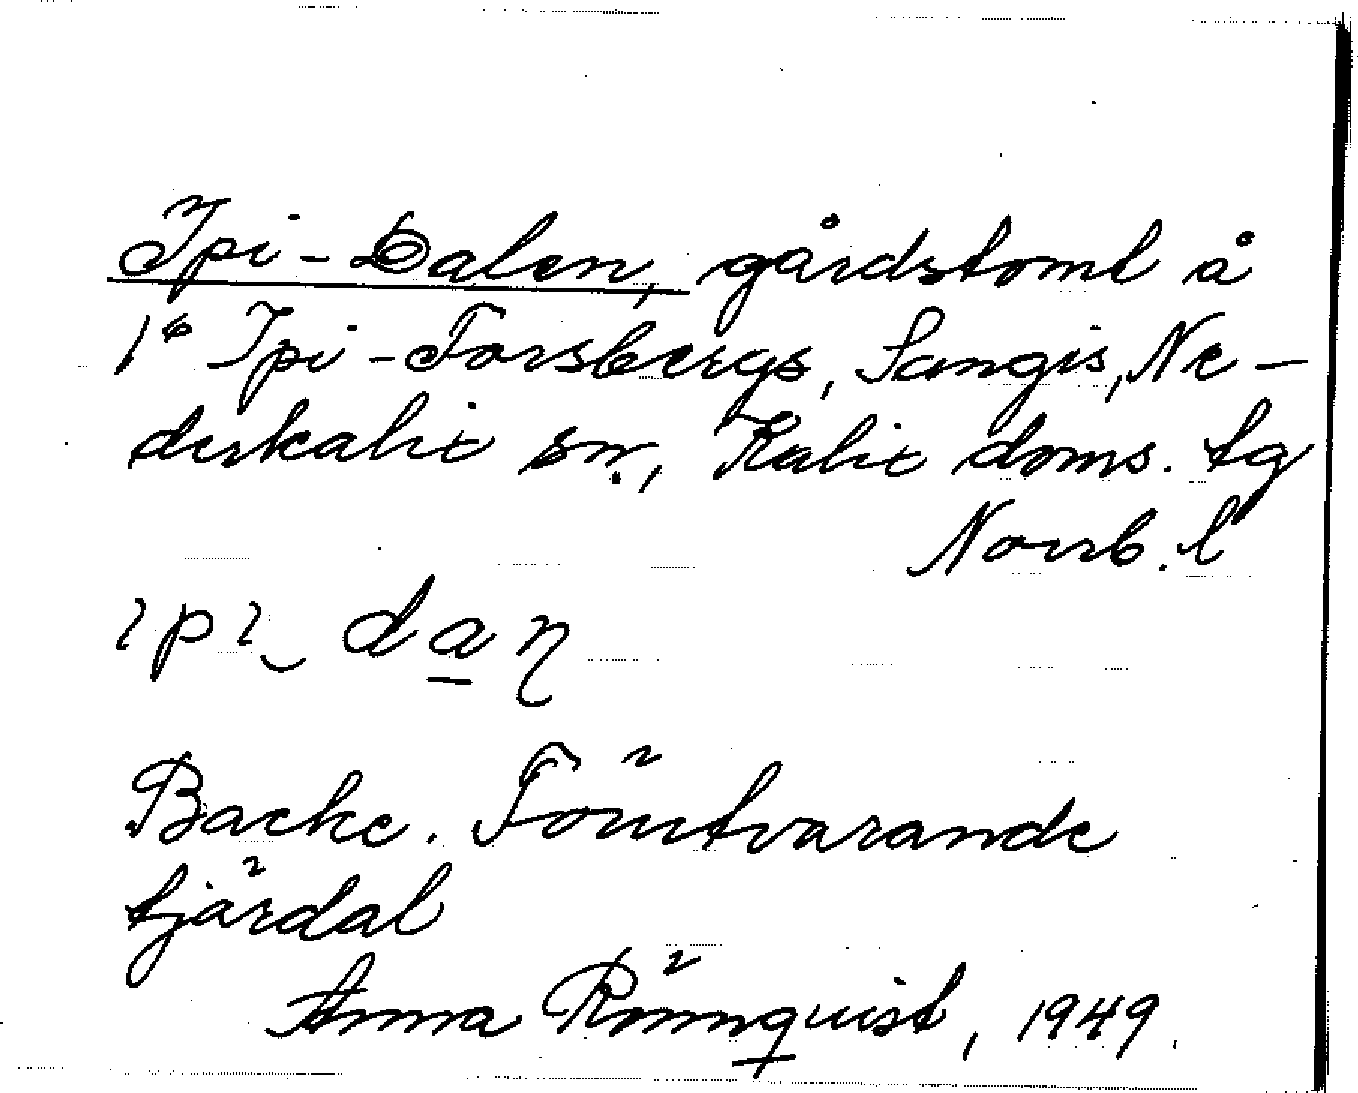 Ipi-Dalen, gårdstomt å
1⁶ Ipi-Forsbergs, Sangis, Ne-
derkalix sn., Kalix doms. tg
Norrb. l
ipi daņ
Backe. Förutvarande
tjärdal
Anna Rönnquist, 1949.